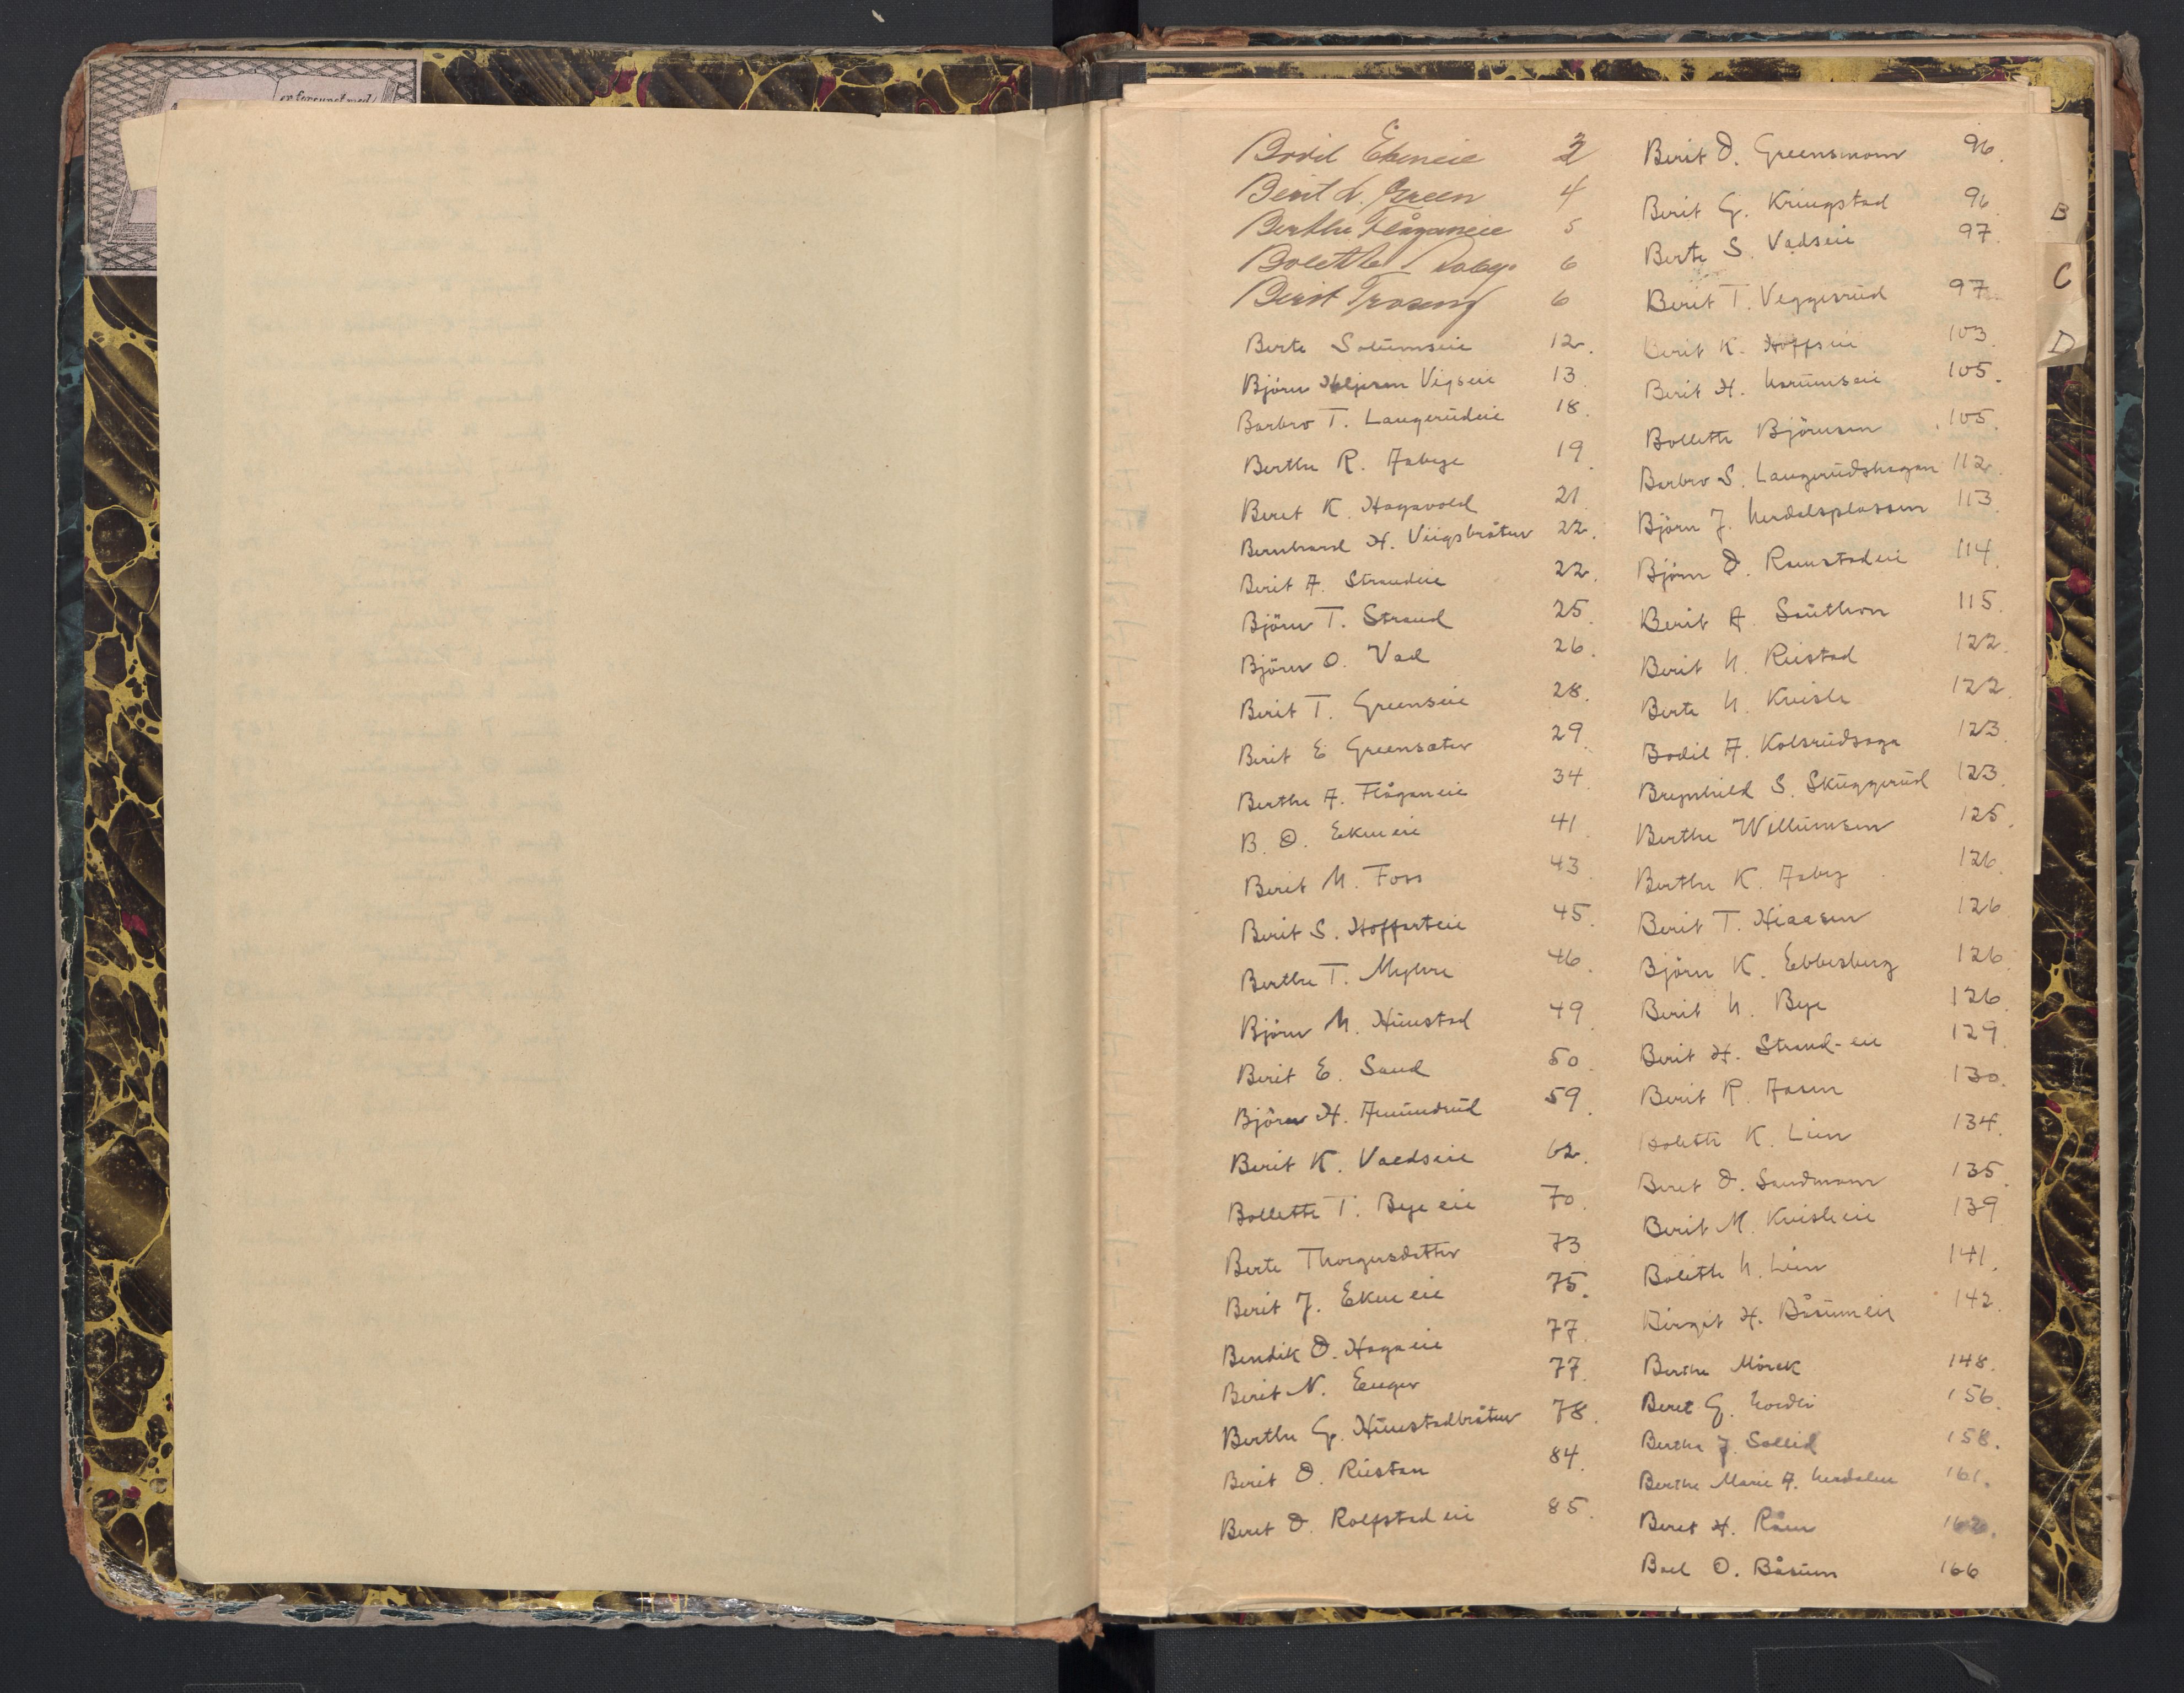 er forsynet med
Bodil Ekeneie 2
Berit L. Green 4
Berthe Flåganeie 5
Bolette Aaby 6
Berit 6
Berte Solumseie 12.
Björn Vigseie 13
Barbro T. Langerudeie 18.
Berthe R. Aabye 19
Beret K. Hagavold 21
Bernhard H. Viigsbråten 22.
Berit A. Strandeie 22.
Björn T. Strand 25
Björn O. Vad 26.
Berit T. Greenseie 28.
Berit E Greensæter 29
Berthe A. Flåganeie 34
B. O. Ekneeie 41
Berit N. Foss 43
Berit S. Hoffarteie 45.
Berthe T. Myhre 46
Björn N. Hiinstad 49
Berit E. Sand 50
Björn H. Amundrud 59.
Berit K. Valdseie 62.
Bollette T. Bye eie 70.
Berte Thorgersdatter 73
Berit J. Ekneeie 75.
Bendik O. Hagaeie 77
Berit N. Enger 77.
Berthe G. Hiinstadbråten 78.
Berit O. Riistan 84.
Beret O. Rolfstadeie 85.
Berit O. Greensmoen 96.
Berit G. Kringstad 96
Berte S. Vadseie 97.
Berit T. Veggerud 97.
Berit K. Hoffseie 103.
Berit H. Narumseie 105.
Bollette Björnsen 105.
Barbro S. Langerudshagan 112.
Björn J. Nerdalsplassen 113
Björn O. Ramstadeie 114.
Berit A. Sæuthon 115.
Berit N. Riistad 122.
Berte N. Kvisle 122.
Bodil A. Kolsrudsaga 123
Brynhild S. Skuggerud 123.
Berthe Willumsen 125.
Berthe K. Aaby 126.
Berit T. Hiaasen 126
Björn K. Ebbesberg 126.
Berit N. Bye 126
Berit H. Strand-eie 129.
Berit R. Aasen 130.
Bolette K. Lien 134.
Beret O. Sandmoen 135.
Berit M. Kvisleeie 139
Bolette N. Lien 141.
Birgit H. Båsumeie 142.
Berthe Mörck 148.
Beret G. Nordli 156.
Berthe J. Sollid 158.
Berthe Marie A. Nerdalen 161.
Beret H. Råen 162.
Boel O. Båsum 166
B
C
D